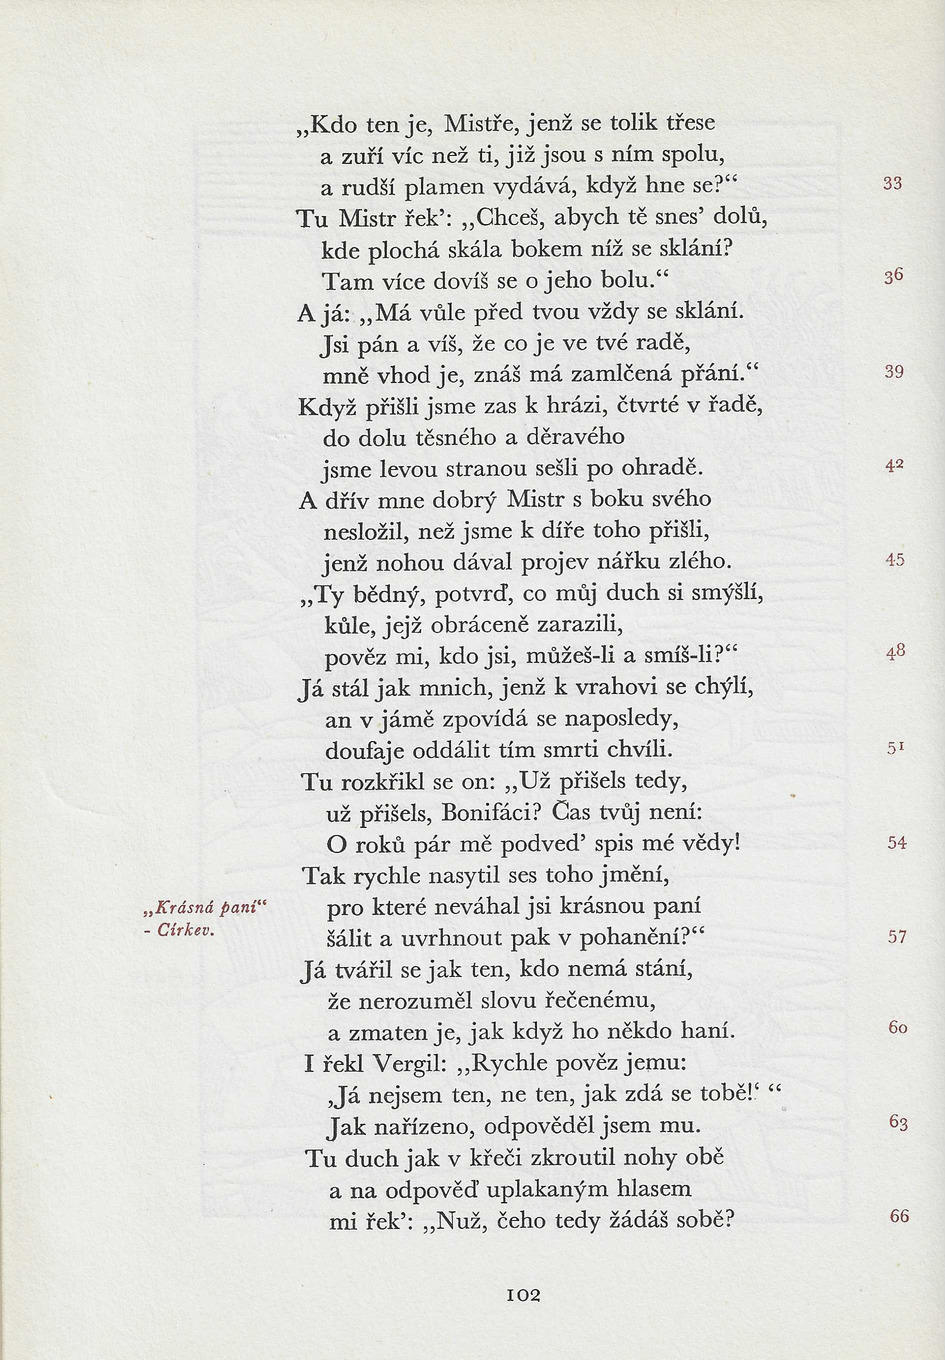 „Kdo ten je, Mistře, jenž se tolik třese
a zuří víc než ti, již jsou s ním spolu,
a rudší plamen vydává, když hne se?“ 33
Tu Mistr řek’: „Chceš, abych tě snes’ dolů,
kde plochá skála bokem níž se sklání?
Tam více dovíš se o jeho bolu.“ 36
A já: „Má vůle před tvou vždy se sklání.
Jsi pán a víš, že co je ve tvé radě,
mně vhod je, znáš má zamlčená přání.“ 39
Když přišli jsme zas k hrázi, čtvrté v řadě,
do dolu těsného a děravého
jsme levou stranou sešli po ohradě. 42
A dřív mne dobrý Mistr s boku svého
nesložil, než jsme k díře toho přišli,
jenž nohou dával projev nářku zlého. 45
„Ty bědný, potvrď, co můj duch si smýšlí,
kůle, jejž obráceně zarazili,
pověz mi, kdo jsi, můžeš-li a smíš-li?“ 48
Já stál jak mnich, jenž k vrahovi se chýlí,
an v jámě zpovídá se naposledy,
doufaje oddálit tím smrti chvíli. 51
Tu rozkřikl se on: „Už přišels tedy,
už přišels, Bonifáci? Čas tvůj není:
O roků pár mě podved’ spis mé vědy! 54
Tak rychle nasytil ses toho jmění,
„Krásná paní“ pro které neváhal jsi krásnou paní
- Církev. šálit a uvrhnout pak v pohanění?“ 57
Já tvářil se jak ten, kdo nemá stání,
že nerozuměl slovu řečenému,
a zmaten je, jak když ho někdo haní. 60
I řekl Vergil: „Rychle pověz jemu:
‚Já nejsem ten, ne ten, jak zdá se tobě!‘ “
Jak nařízeno, odpověděl jsem mu. 63
Tu duch jak v křeči zkroutil nohy obě
a na odpověď uplakaným hlasem
mi řek’: „Nuž, čeho tedy žádáš sobě? 66
102